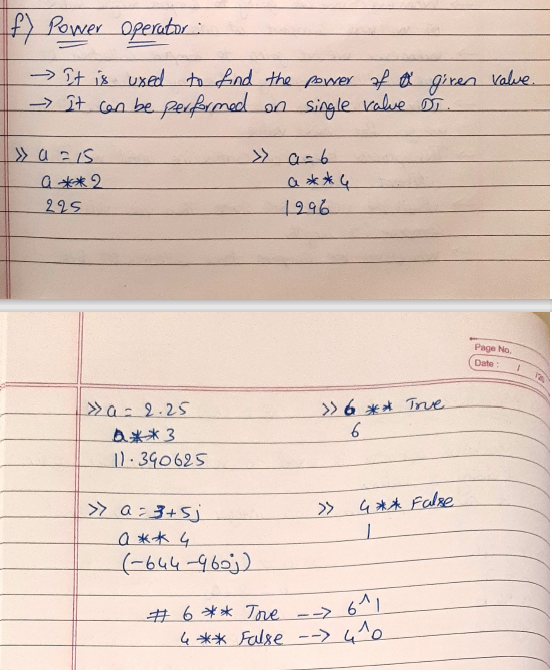 f) Power Operator:
→ It is used to find the power of a given value.
→ It can be performed on single value DT.
>> a = 15
a ** 2
225
>> a = 6
a ** 4
1296
Page No.
Date : /
>> a = 2.25
a ** 3
11.390625
>> 6 ** True
6
>> a = 3+5j
a ** 4
(-644-960j)
>> 4 ** False
1
# 6 ** True --> 6^1
4 ** False --> 4^0